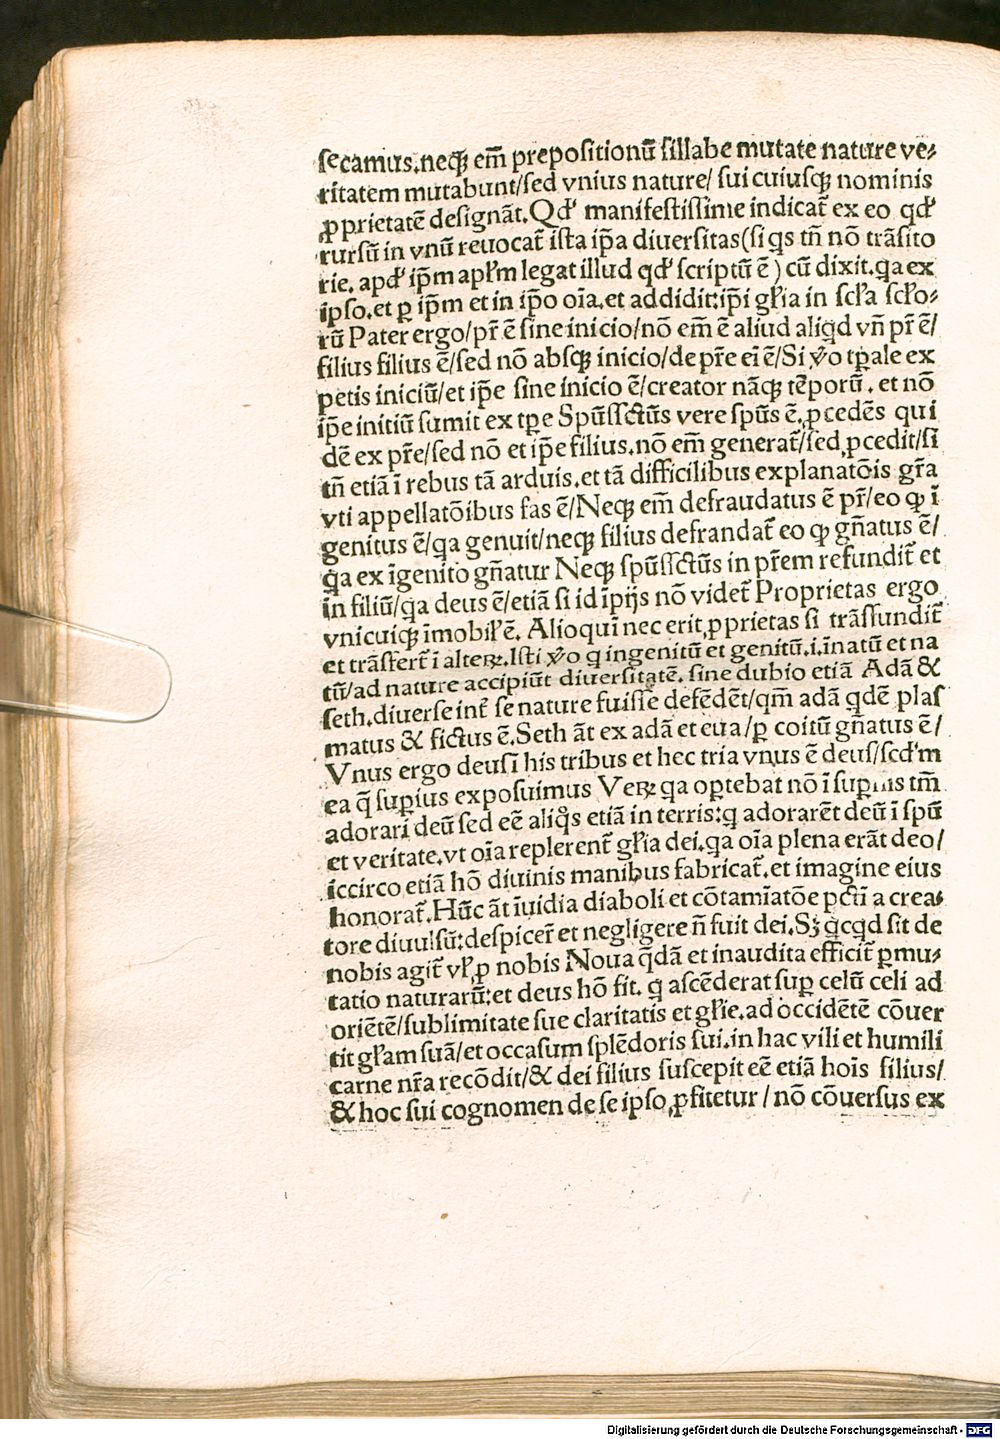 secamus.neqꝫ em̃ prepositionũ sillabe mutate nature ve⸗
ritatem mutabunt/sed vnius nature/ sui cuiusqꝫ nominis
ꝓprietatẽ designãt.Qd' manifestissime indicat̃ ex eo qd'
rursũ in vnũ reuocat̃ ista ip̃a diuersitas(si q̃s tñ nõ trãsito
rie. apd' ip̃m apl̃m legat illud qd' scriptũ ẽ) cũ dixit.qa ex
ipso.et ꝑ ip̃m et in ip̃o oĩa.et addidit:ip̃i gl̃ia in scl̃a scl̃o⸗
rũ Pater ergo/pr̃ ẽ sine inicio/nõ em̃ ẽ aliud aliqd vñ pr̃ ẽ/
filius filius ẽ/sed nõ absqꝫ inicio/de pr̃e ei ẽ/Si ṽo tꝑale ex
petis iniciũ/et ip̃e sine inicio ẽ/creator nãqꝫ tẽporũ. et nõ
ip̃e initiũ sumit ex tꝑe Spũssctũs vere spũs ẽ.ꝓcedẽs qui
dẽ ex pr̃e/sed nõ et ip̃e filius.nõ em̃ generat̃/sed ꝓcedit/si
tñ etiã ĩ rebus tã arduis.et tã difficilibus explanatõis gr̃a
vti appellatõibus fas ẽ/Neqꝫ em̃ defraudatus ẽ pr̃/eo ꝙ ĩ
genitus ẽ/qa genuit/neqꝫ filius defrandat̃ eo ꝙ gñatus ẽ/
qa ex ĩgenito gñatur Neqꝫ spũssctũs in pr̃em refundit̃ et
in filiũ/qa deus ẽ/etiã si id ĩpijs nõ videt̃ Proprietas ergo
vnicuiqꝫ ĩmobil̃ ẽ. Alioquĩ nec erit ꝓprietas si trãssundit̃
et trãsfert̃ ĩ alteꝝ.Isti ṽo q ingenitũ et genitũ.i.ĩnatũ et na
tũ/ad nature accipiũt diuersitatẽ. sine dubio etiã Adã &
seth.diuerse int̃ se nature fuisse defẽdẽt/qm̃ adã qdẽ plas
matus & fictus ẽ.Seth ãt ex adã et eua/ꝑ coitũ gñatus ẽ/
Vnus ergo deusĩ his tribus et hec tria vnus ẽ deus/scd'm
ea q̃ suꝑius exposuimus Veꝝ qa oꝑtebat nõ ĩ suꝑnis tm̃
adorari deũ sed eẽ aliq̃s etiã in terris:q adorarẽt deũ ĩ spũ
et veritate.vt oĩa replerent̃ gl̃ia dei.qa oĩa plena erãt deo/
iccirco etiã hõ diuinis manibus fabricat̃.et imagine eius
honorat̃.Hũc ãt ĩuidia diaboli et cõtamĩatõe pctĩ a crea⸗
tore diuulsũ:despicer̃ et negligere ñ fuit dei.Sꝫ qcqd sit de
nobis agit̃ vl̃ ꝓ nobis Noua q̃dã et inaudita efficit̃ ꝑmu⸗
tatio naturarũ:et deus hõ fit. q ascẽderat suꝑ celũ celi ad
oriẽtẽ/sublimitate sue claritatis et gl̃ie.ad occidẽtẽ cõuer
tit gl̃am suã/et occasum splẽdoris sui.in hac vili et humili
carne nr̃a recõdit/& dei filius suscepit eẽ etiã hoĩs silius/
& hoc sui cognomen de se ipso ꝓfitetur / nõ cõuersus ex
Digitalisierung gefördert durch die Deutsche Forschungsgemeinschaft - DFG